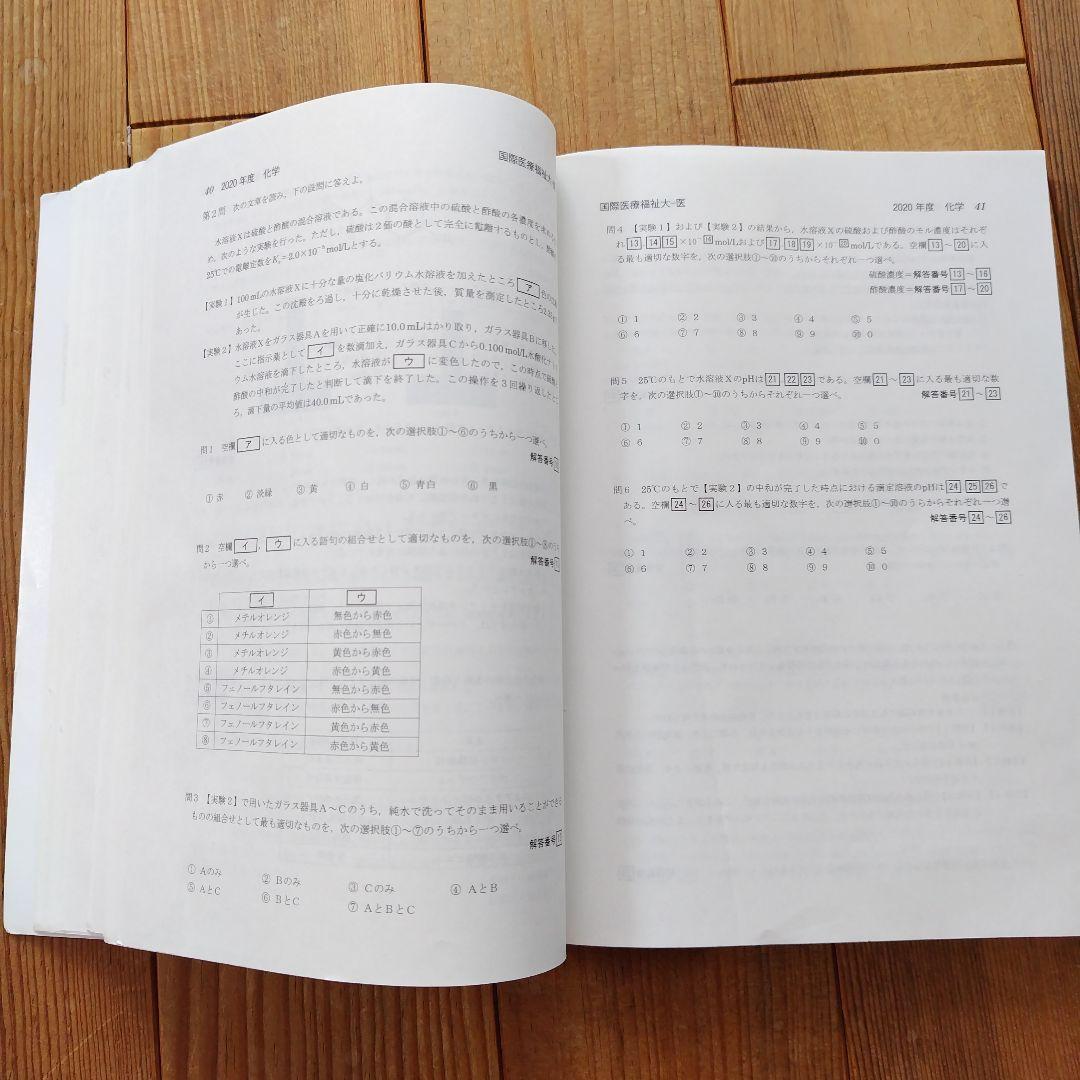 40 2020年度 化学
国際医療福祉大
第2問 次の文章を読み,下の設問に答えよ。
水溶液Xは硫酸と酢酸の混合溶液である。この混合溶液中の硫酸と酢酸の各濃度を求
め,次のような実験を行った。ただし,硫酸は2価の酸として完全に電離するものとし,
25℃での電離定数をK=2.0×10⁻⁵mol/Lとする。
【実験1】100mLの水溶液Xに十分な量の塩化バリウム水溶液を加えたところ ア 色の
が生じた。この沈殿をろ過し,十分に乾燥させた後,質量を測定したところ2.33g
あった。
【実験2】水溶液Xをガラス器具Aを用いて正確に10.0mLはかり取り,ガラス器具Bに移した。
ここに指示薬として イ を数滴加え,ガラス器具Cから0.100mol/L水酸化ナトリ
ウム水溶液を滴下したところ,水溶液が ウ に変色したので,この時点で
酢酸の中和が完了したと判断して滴下を終了した。この操作を3回繰り返したとこ
ろ,滴下量の平均値は40.0mLであった。
問1 空欄 ア に入る色として適切なものを,次の選択肢①~⑥のうちから一つ選べ。
解答番号
① 赤 ② 淡緑 ③ 黄 ④ 白 ⑤ 青白 ⑥ 黒
問2 空欄 イ , ウ に入る語句の組合せとして適切なものを,次の選択肢①~⑧のうち
から一つ選べ。
解答番号
イ ウ
① メチルオレンジ 無色から赤色
② メチルオレンジ 赤色から無色
③ メチルオレンジ 黄色から赤色
④ メチルオレンジ 赤色から黄色
⑤ フェノールフタレイン 無色から赤色
⑥ フェノールフタレイン 赤色から無色
⑦ フェノールフタレイン 黄色から赤色
⑧ フェノールフタレイン 赤色から黄色
問3 【実験2】で用いたガラス器具A~Cのうち,純水で洗ってそのまま用いることができる
ものの組合せとして最も適切なものを,次の選択肢①~⑦のうちから一つ選べ。
解答番号
① Aのみ ② Bのみ ③ Cのみ ④ AとB
⑤ AとC ⑥ BとC ⑦ AとBとC
国際医療福祉大-医
2020年度 化学 41
問4 【実験1】および【実験2】の結果から,水溶液Xの硫酸および酢酸のモル濃度はそれぞ
れ 13 . 14 15 ×10⁻ 16 mol/Lおよび 17 . 18 19 ×10⁻ 20 mol/Lである。空欄 13 ~ 20 に入
る最も適切な数字を,次の選択肢①~⑩のうちからそれぞれ一つ選べ。
硫酸濃度=解答番号 13 ~ 16
酢酸濃度=解答番号 17 ~ 20
① 1 ② 2 ③ 3 ④ 4 ⑤ 5
⑥ 6 ⑦ 7 ⑧ 8 ⑨ 9 ⑩ 0
問5 25℃のもとで水溶液XのpHは 21 . 22 23 である。空欄 21 ~ 23 に入る最も適切な数
字を,次の選択肢①~⑩のうちからそれぞれ一つ選べ。
解答番号 21 ~ 23
① 1 ② 2 ③ 3 ④ 4 ⑤ 5
⑥ 6 ⑦ 7 ⑧ 8 ⑨ 9 ⑩ 0
問6 25℃のもとで【実験2】の中和が完了した時点における滴定溶液のpHは 24 . 25 26 で
ある。空欄 24 ~ 26 に入る最も適切な数字を,次の選択肢①~⑩のうちからそれぞれ一つ選
べ。
解答番号 24 ~ 26
① 1 ② 2 ③ 3 ④ 4 ⑤ 5
⑥ 6 ⑦ 7 ⑧ 8 ⑨ 9 ⑩ 0